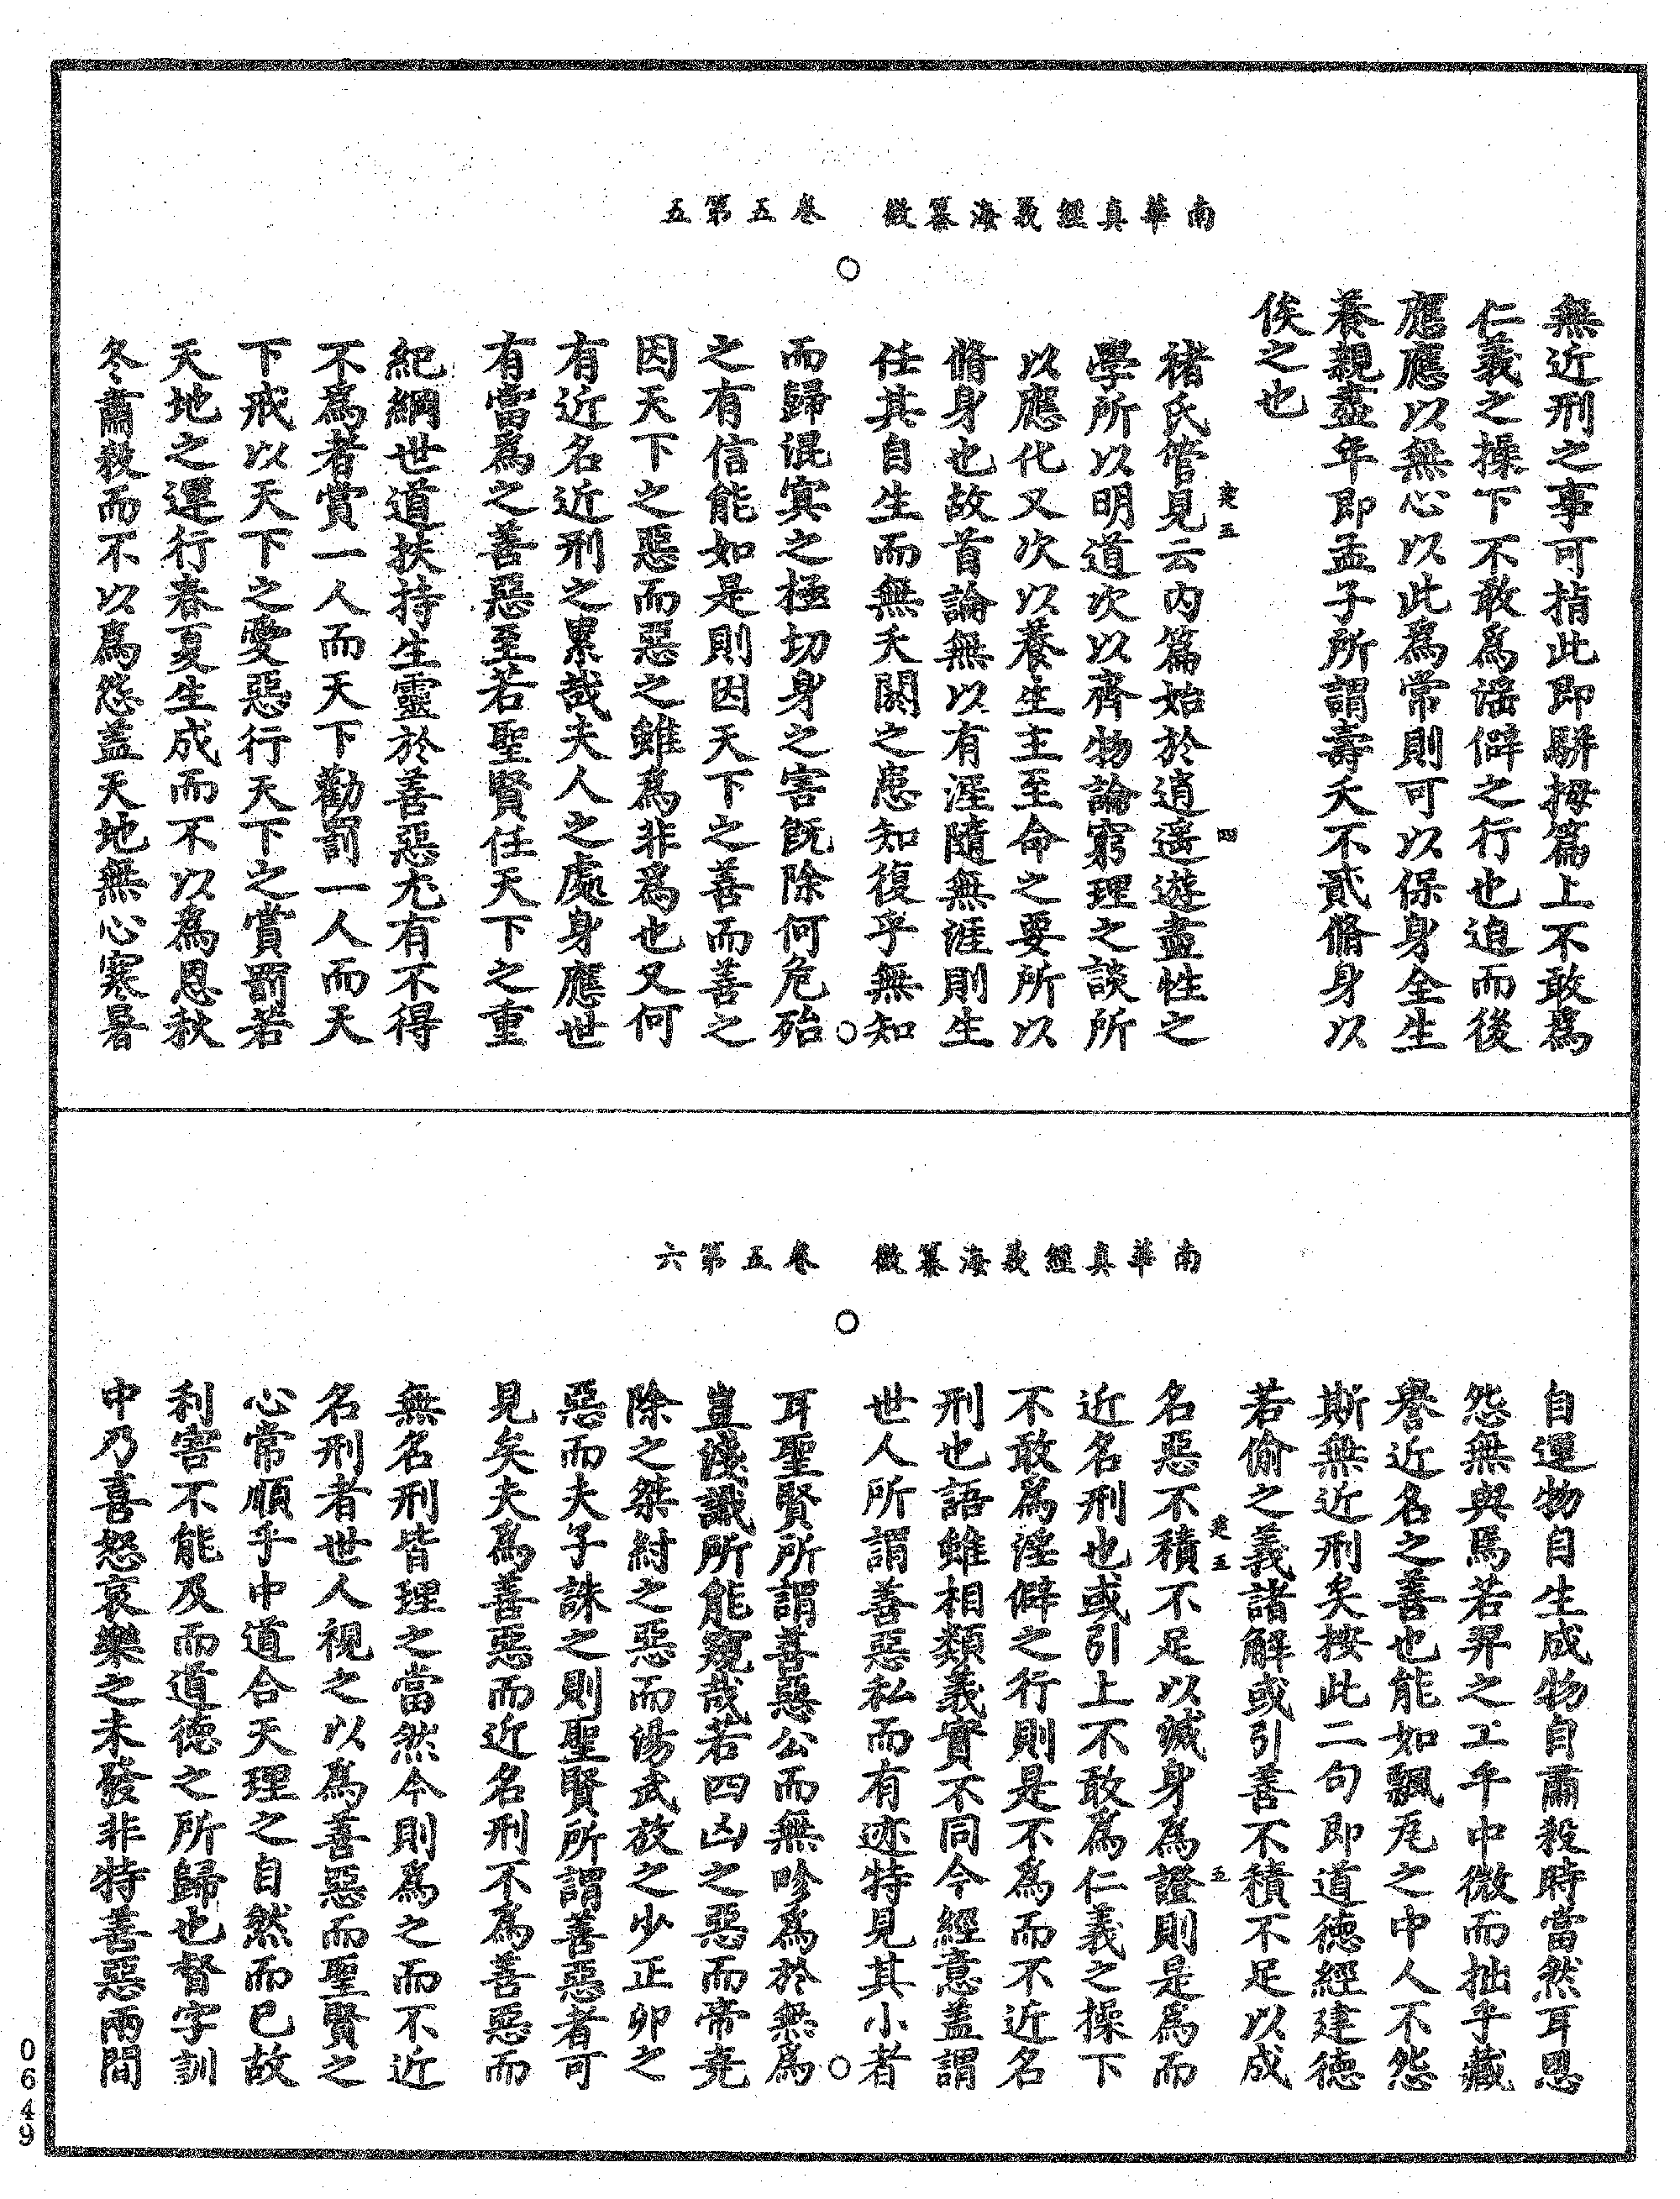 南華真經義海纂微　卷五第五
無近刑之事可指此即駢拇篇上不敢爲
仁義之操下不敢爲淫僻之行也迫而後
應應以無心以此爲常則可以保身全生
養親盡年即孟子所謂壽夭不貳脩身以
俟之也
褚氏管見云內篇始於逍遙遊盡性之
學所以明道次以齊物論窮理之談所
以應化又次以養生主至命之要所以
脩身也故首論無以有涯隨無涯則生
任其自生而無夭閼之患知復乎無知
而歸混冥之極切身之害既除何危殆
之有信能如是則因天下之善而善之
因天下之惡而惡之雖爲非爲也又何
有近名近刑之累哉夫人之處身應世
有當爲之善惡至若聖賢任天下之重
紀綱世道扶持生靈於善惡尤有不得
不爲者賞一人而天下勸罰一人而天
下戒以天下之愛惡行天下之賞罰若
天地之運行春夏生成而不以爲恩秋
冬肅殺而不以爲怨蓋天地無心寒暑
南華真經義海纂微　卷五第六
自運物自生成物自肅殺時當然耳恩
怨無與焉若羿之工乎中微而拙乎藏
譽近名之善也能如飄瓦之中人不怨
斯無近刑矣按此二句即道德經建德
若偷之義諸解或引善不積不足以成
名惡不積不足以滅身爲證則是爲而
近名刑也或引上不敢爲仁義之操下
不敢爲淫僻之行則是不爲而不近名
刑也語雖相類義實不同今經意蓋謂
世人所謂善惡私而有迹特見其小者
耳聖賢所謂善惡公而無畛爲於無爲
豈淺識所能窺哉若四凶之惡而帝堯
除之桀紂之惡而湯武放之少正卯之
惡而夫子誅之則聖賢所謂善惡者可
見矣夫爲善惡而近名刑不爲善惡而
無名刑皆理之當然今則爲之而不近
名刑者世人視之以爲善惡而聖賢之
心常順乎中道合天理之自然而已故
利害不能及而道德之所歸也督字訓
中乃喜怒哀樂之未發非特善惡兩間
0649